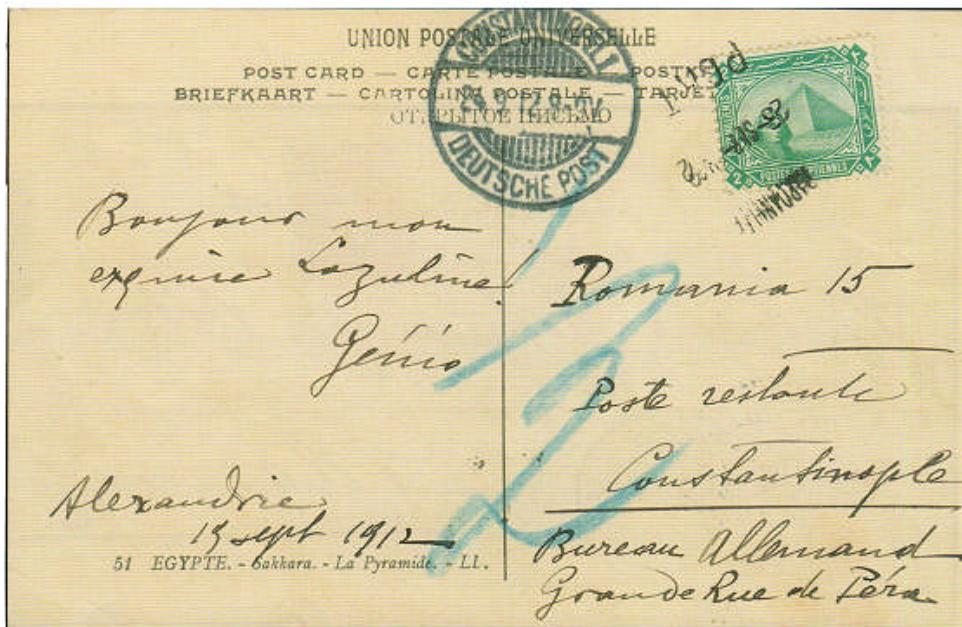 UNION POSTALE UNIVERSELLE
POST CARD — CARTE POSTALE — POSTK
BRIEFKAART — CARTOLINA POSTALE — TARJET
ОТКРЫТОЕ ПИСЬМО
CONSTANTINOPEL 1
9.12.8-9V.
DEUTSCHE POST
POSTES EGYPTIENNES
2 2
Bonjour mon
exquise Lazuline!
Génio
Alexandrie
sept 1912
51 EGYPTE. - Sakkara. - La Pyramide. - LL.
Romania 15
Poste restante
Constantinople
Bureau Allemand
Grande Rue de Péra